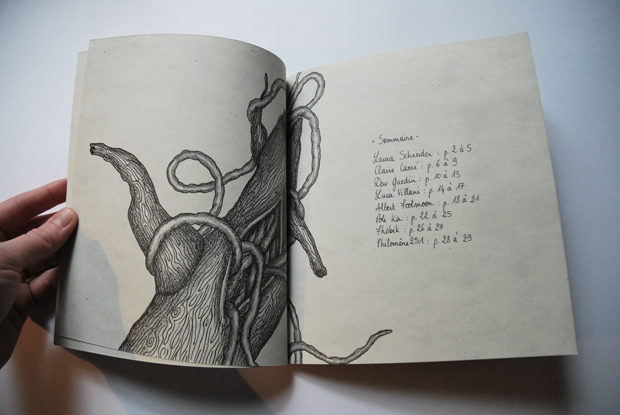 • Sommaire •
Laura Schneider : p. 2 à 5
Claire Carré : p. 6 à 9
Dav Guedin : p. 10 à 13
Luca Villani : p. 14 à 17
Albert Foolmoon : p. 18 à 21
Pole Ka : p. 22 à 25
Thébik : p. 26 à 27
Philomène251 : p. 28 à 29